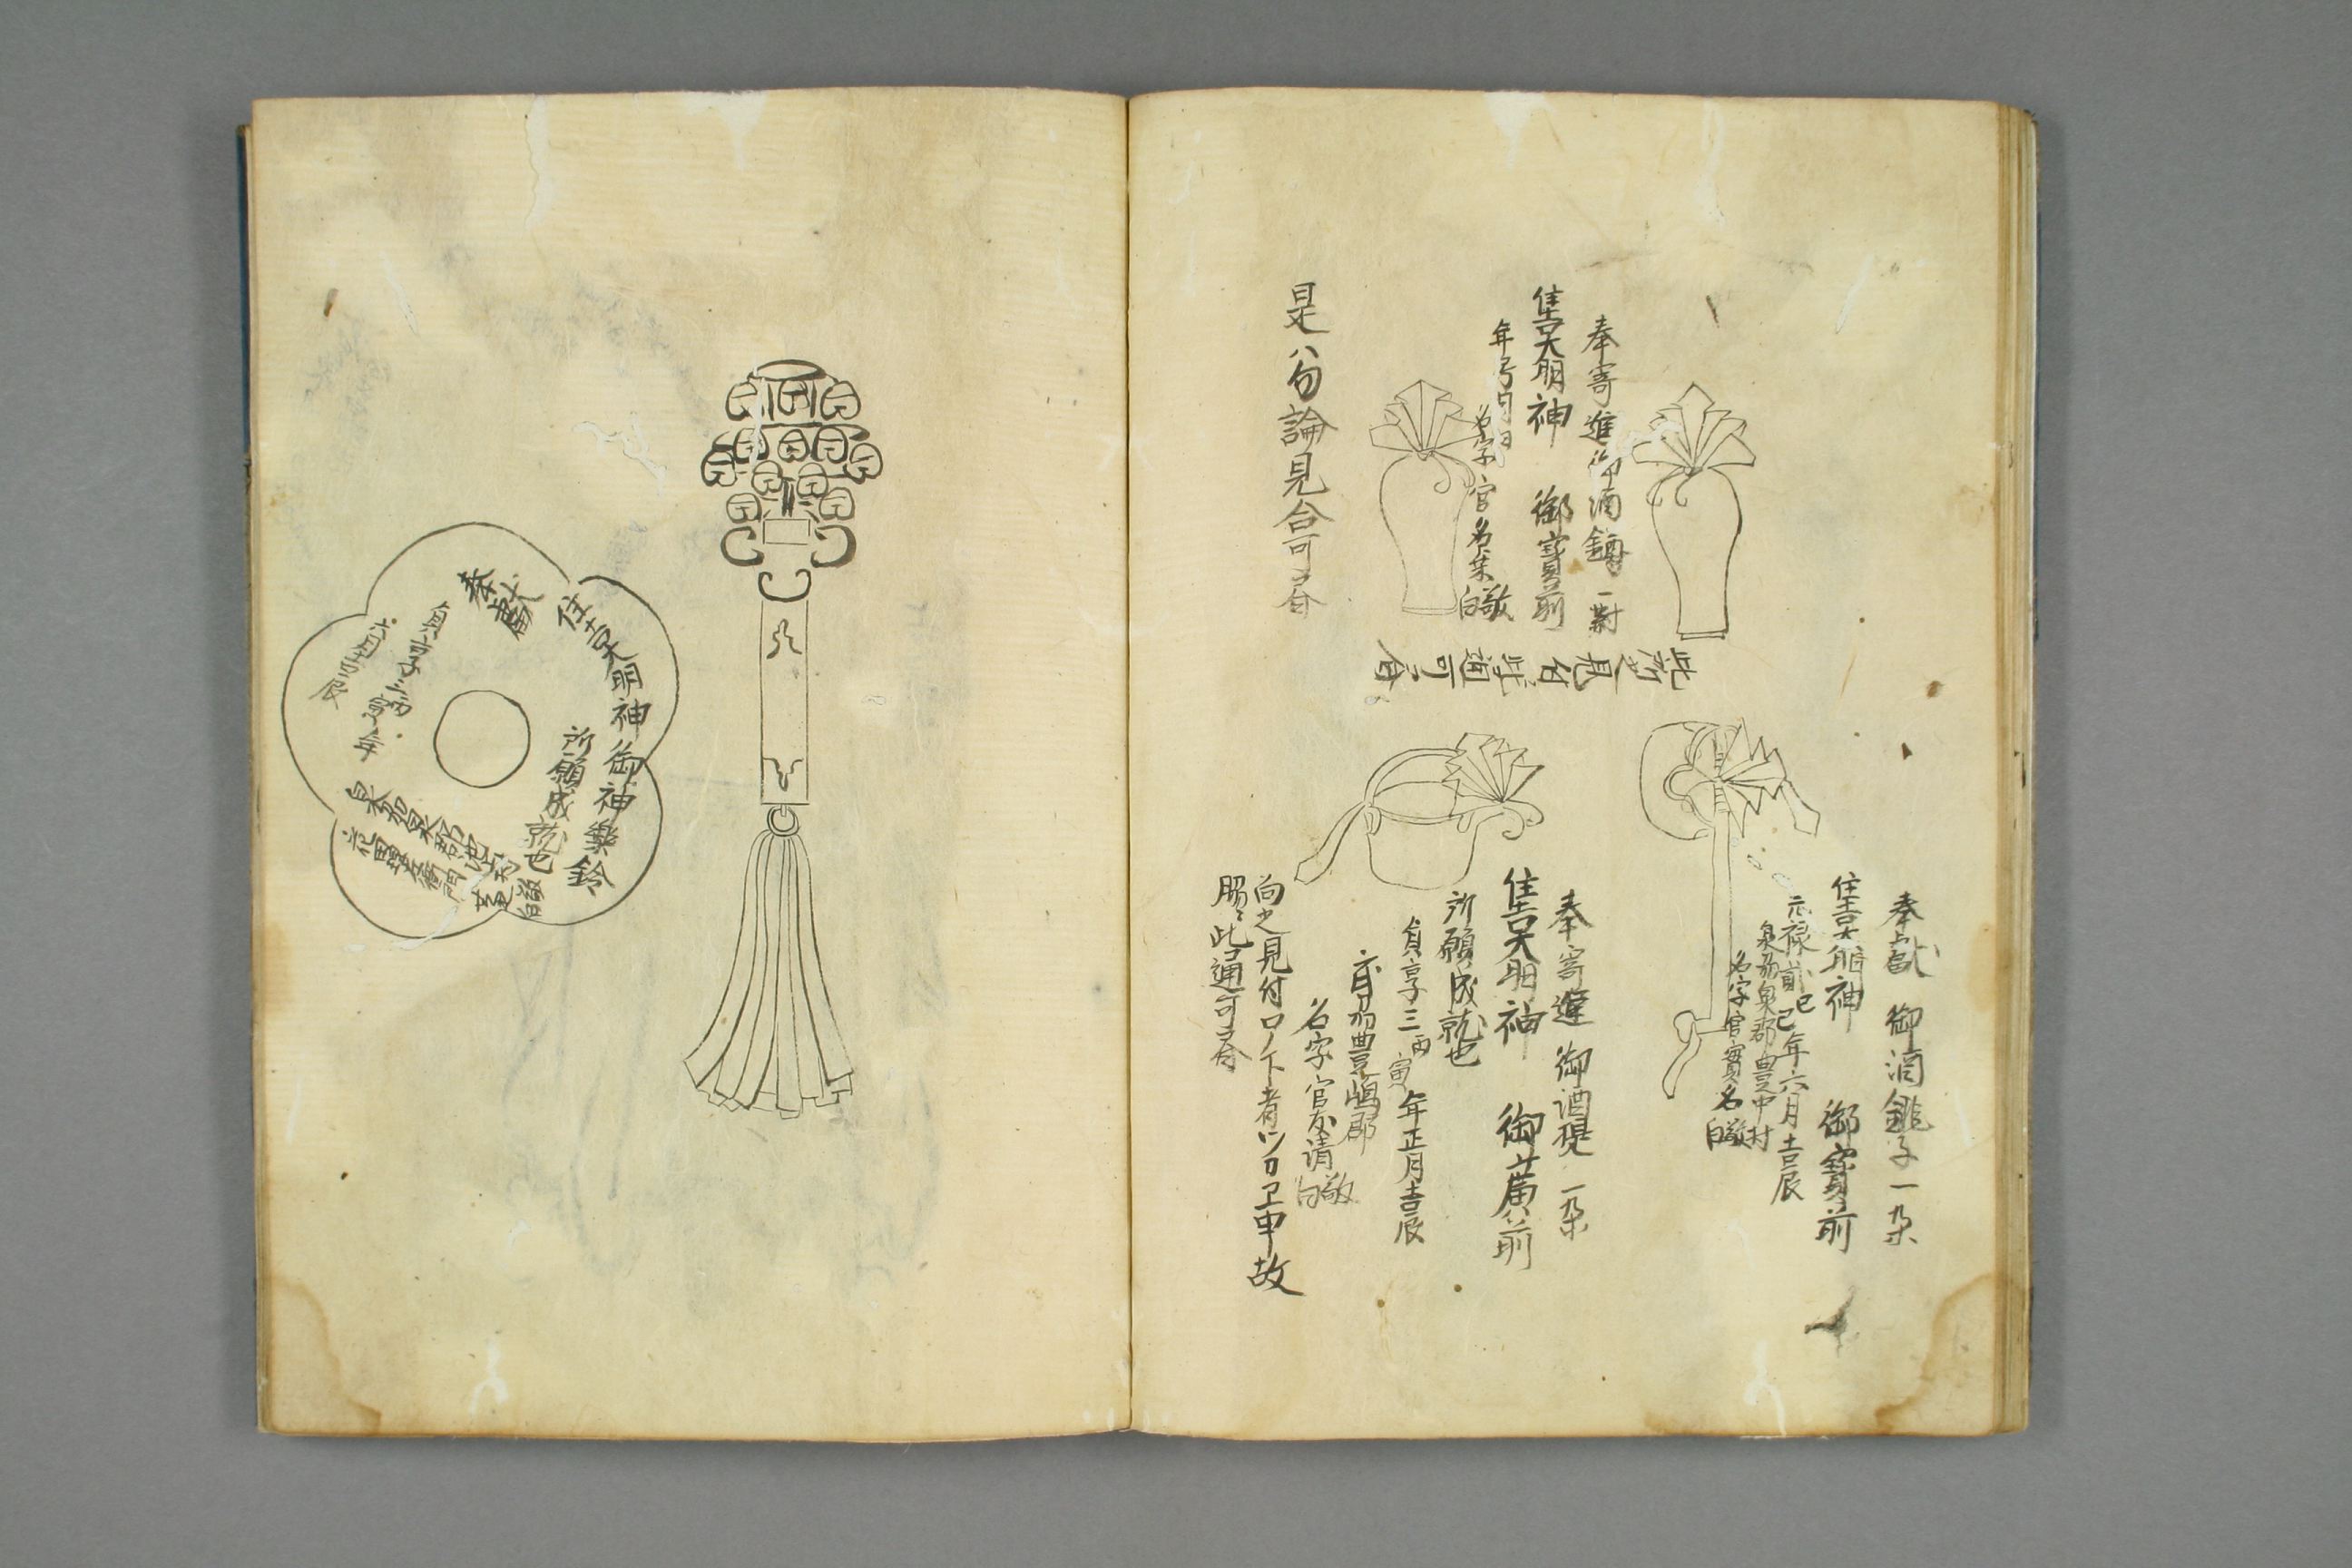 奉寄進御酒錫一對
住吉大明神 御寶前
年号月日
名字官名乗敬白
是ハ勿論見合可有
此所也見合此通可有
奉獻 御酒銚子一朶
住吉大明神 御寶前
元禄貳己巳年六月吉辰
泉州泉郡豊中村
名字官實名敬白
奉寄進 御酒提一朶
住吉大明神 御廣前
所願成就也
貞享三丙寅年正月吉辰
豊嶋郡
名字官友清敬白
向之見付口ノ下者ツカヱ申故
脇ニ此通可有
奉獻
住吉大明神御神樂鈴
所願成就也
貞享三丙寅年
六月吉辰
泉州泉郡池上村
敬白